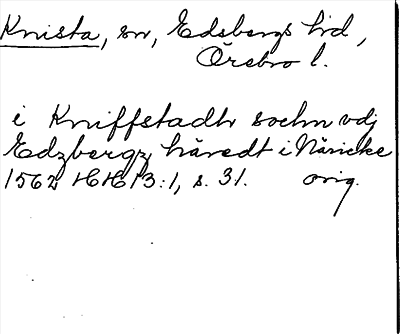 Knista, sn, Edsbergs hd,
Örebro l.
i Kniffstadh sochn vdj
Edzbergz häredt i Näricke
1562 HH 13:1, s. 31. orig.